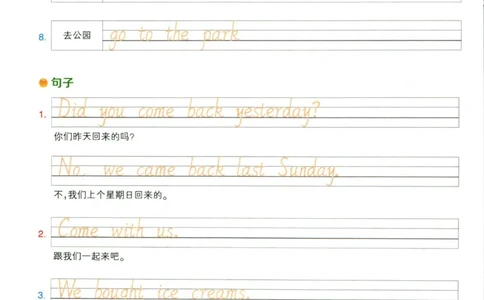 8. 去公园 go to the park
句子
1. Did you come back yesterday?
你们昨天回来的吗?
No, we came back last Sunday.
不,我们上个星期日回来的。
2. Come with us.
跟我们一起来吧。
3. We bought ice creams.